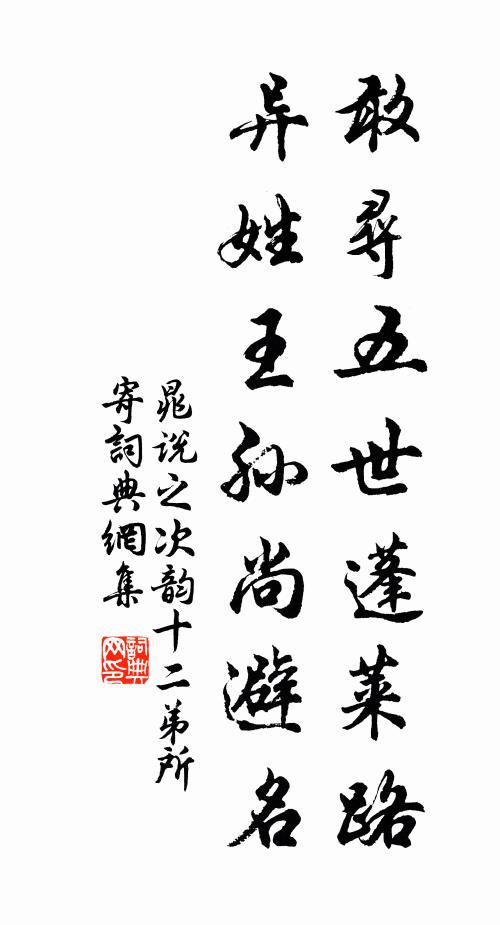 敢尋五世蓬萊路
异姓王孙尚避名
晁说之次韵十二弟所
寄詞典網集
詞典
网印